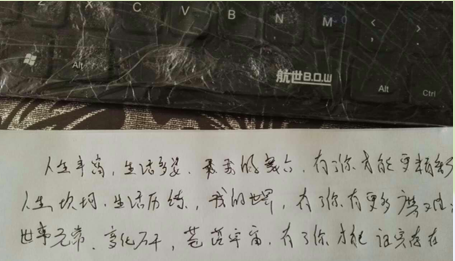 Z X C V B N M < >
Alt 航世B.O.W Alt Ctrl
人生丰富，生活多姿，未来的舞台，有了你才能更精彩
人生坎坷，生活历练，我的世界，有了你有更多
世事无常，变化万千，苍茫宇宙，有了你才能证实存在